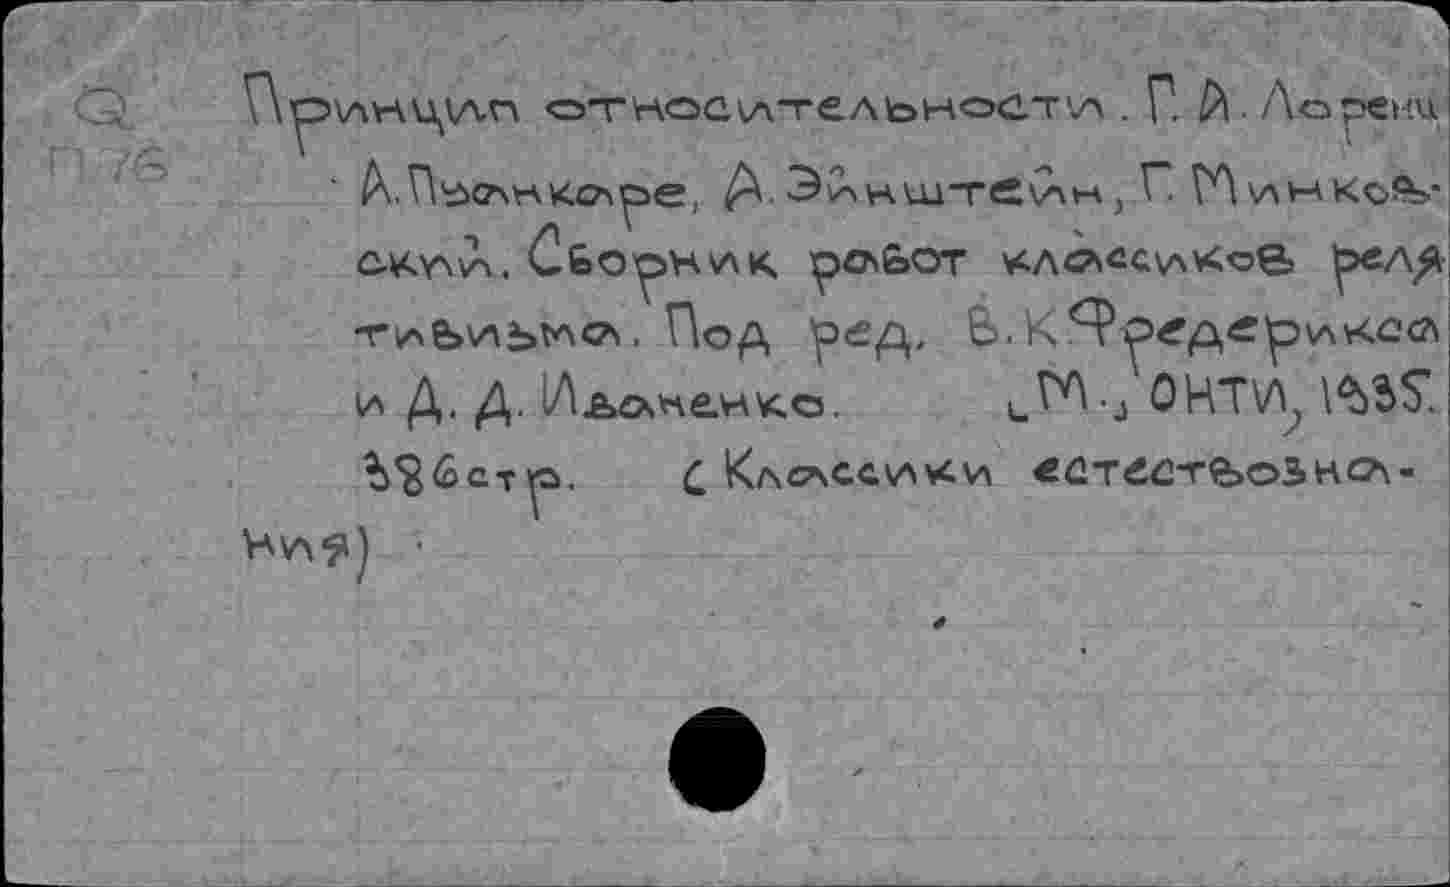 Q Принцип относительности. Г. А. Лоренц
П 76 А. Пуанкаре, А. Эйнштейн, Г. Минков-
ский. Сборник работ классиков реля
тивизма. Под ред. В.К Фредерикса
и Д. Д. Иваненко. М., ОНТИ, 1935.
386 стр. (Классики естествозна-
ния)